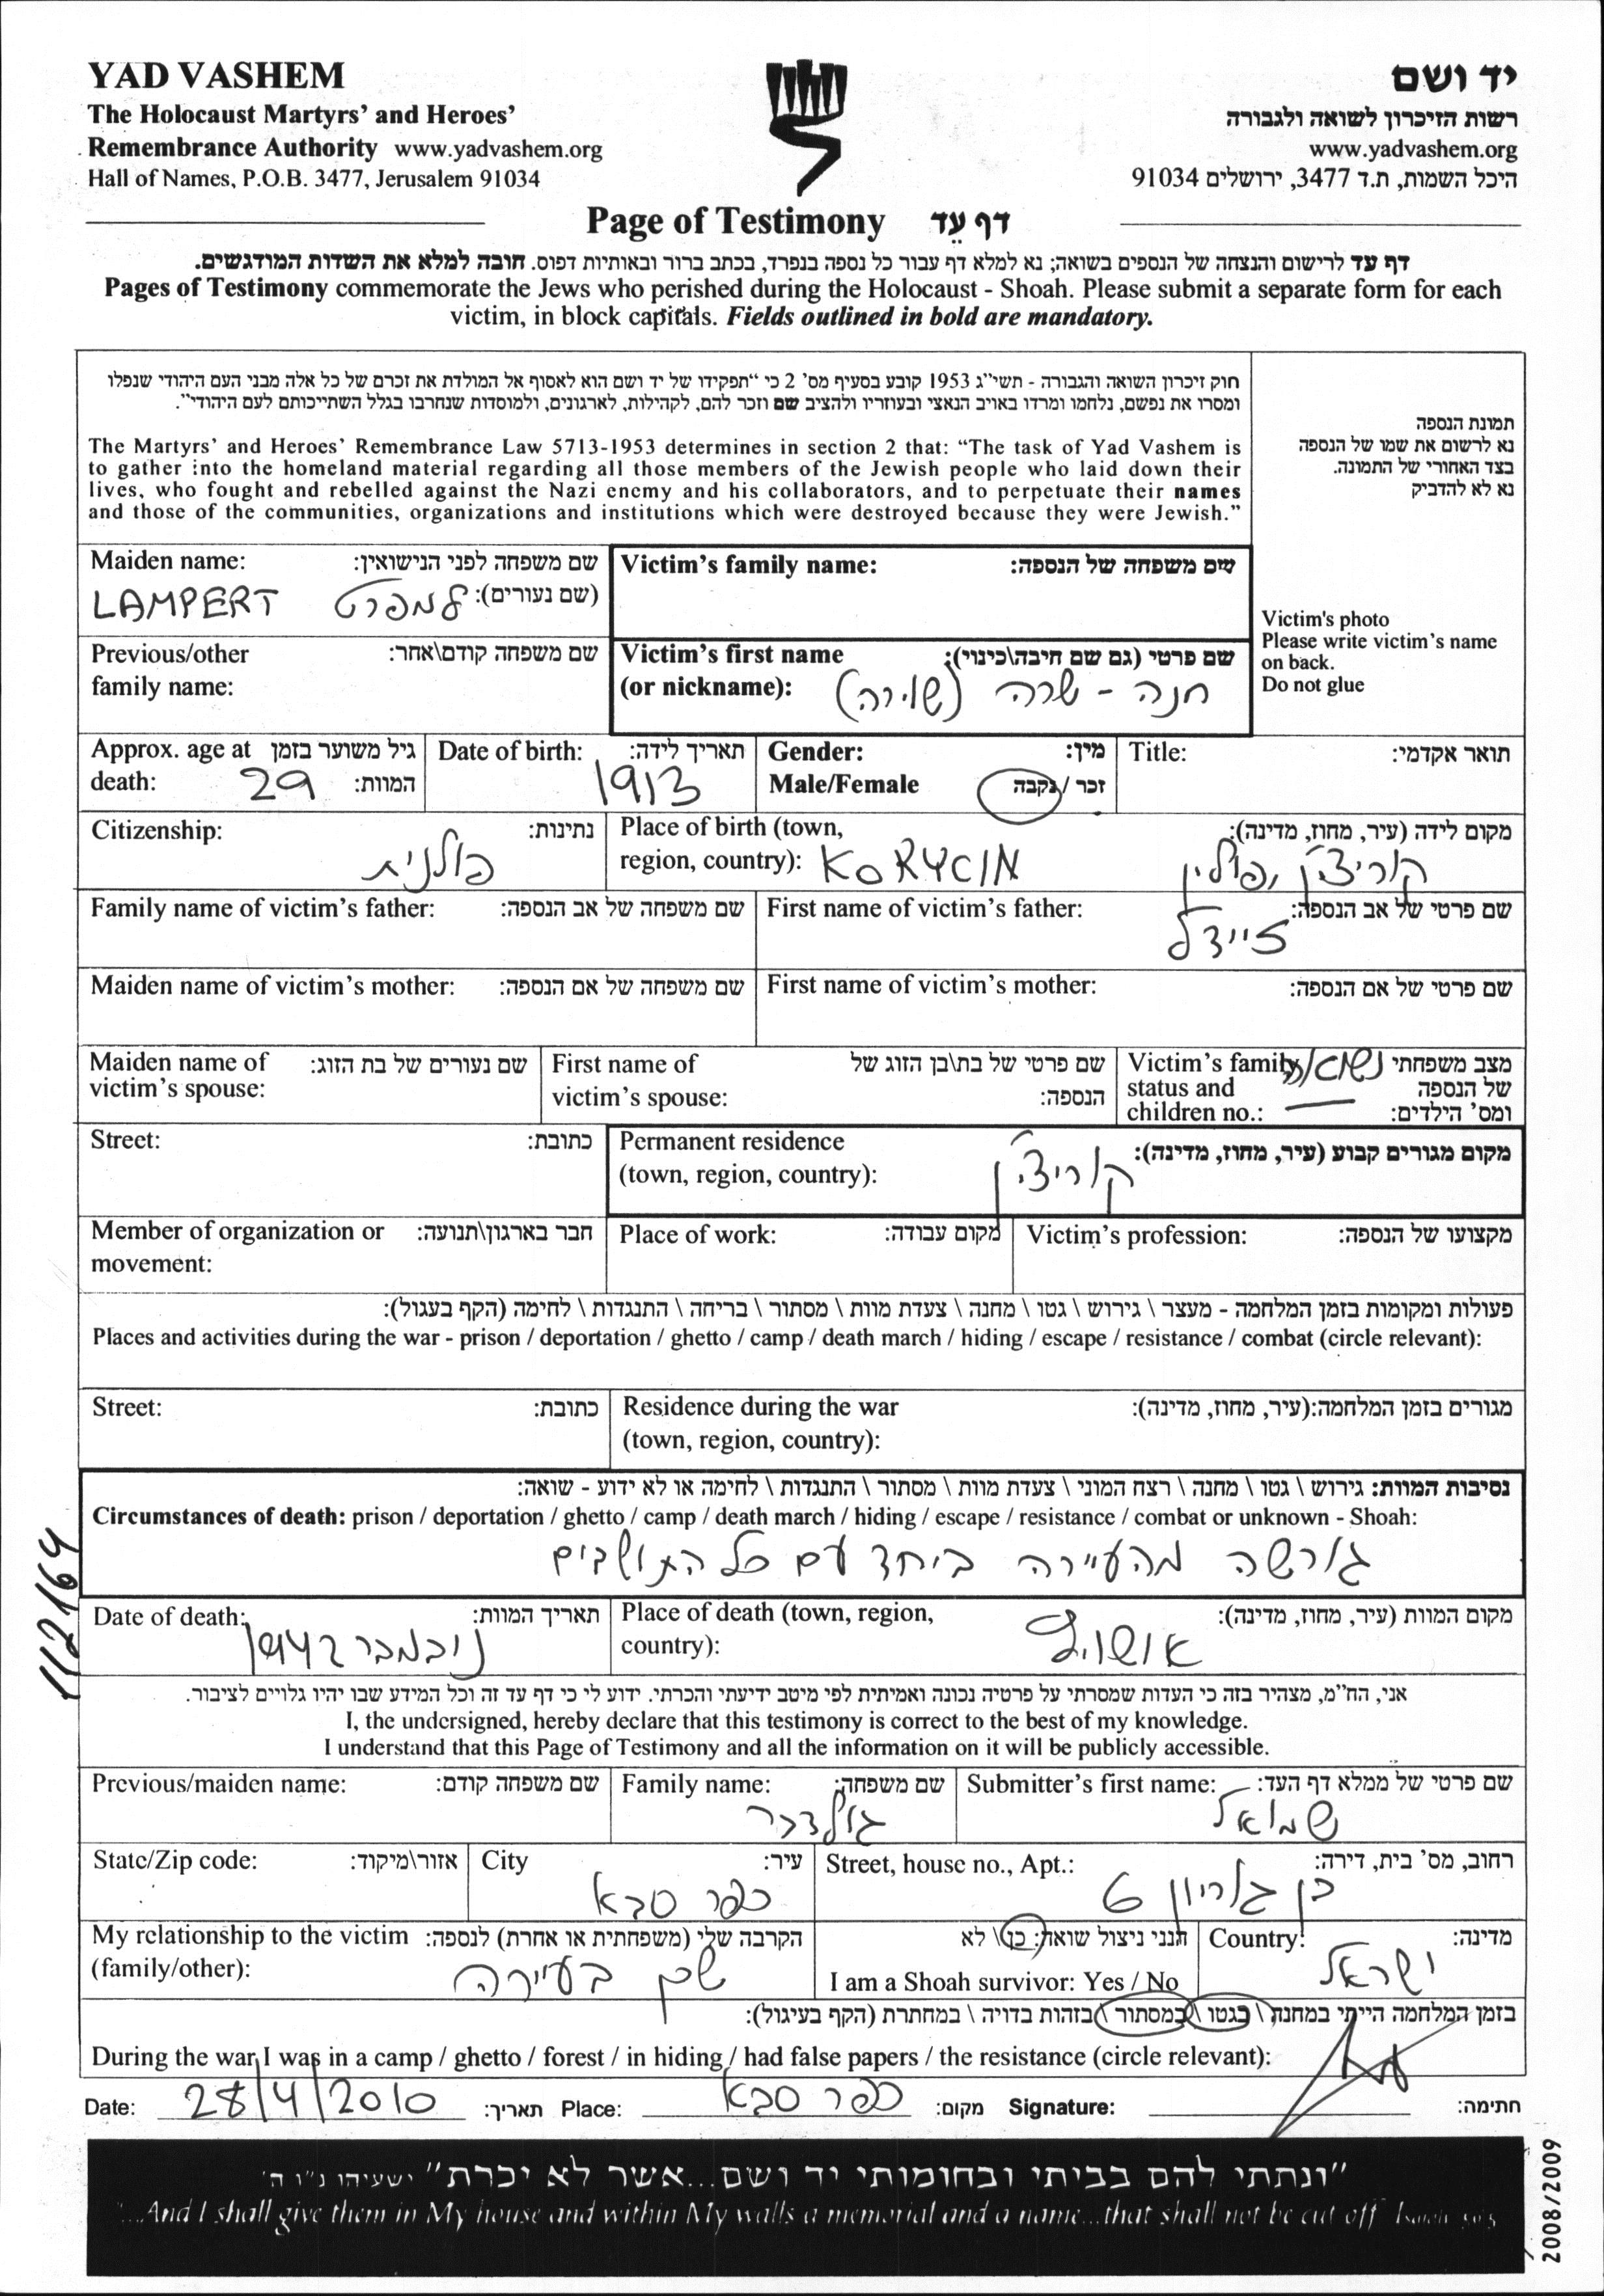 YAD VASHEM
יד ושם
The Holocaust Martyrs' and Heroes'
רשות הזיכרון לשואה ולגבורה
Remembrance Authority www.yadvashem.org
www.yadvashem.org
Hall of Names, P.O.B. 3477, Jerusalem 91034
היכל השמות, ת.ד 3477, ירושלים 91034
Page of Testimony דף עֵד
דף עד לרישום והנצחה של הנספים בשואה; נא למלא דף עבור כל נספה בנפרד, בכתב ברור ובאותיות דפוס. חובה למלא את השדות המודגשים.
Pages of Testimony commemorate the Jews who perished during the Holocaust - Shoah. Please submit a separate form for each
victim, in block capitals. Fields outlined in bold are mandatory.
חוק זיכרון השואה והגבורה - תשי"ג 1953 קובע בסעיף מס' 2 כי "תפקידו של יד ושם הוא לאסוף אל המולדת את זכרם של כל אלה מבני העם היהודי שנפלו
ומסרו את נפשם, נלחמו ומרדו באויב הנאצי ובעוזריו ולהציב שם וזכר להם, לקהילות, לארגונים, ולמוסדות שנחרבו בגלל השתייכותם לעם היהודי".
The Martyrs' and Heroes' Remembrance Law 5713-1953 determines in section 2 that: "The task of Yad Vashem is
to gather into the homeland material regarding all those members of the Jewish people who laid down their
lives, who fought and rebelled against the Nazi enemy and his collaborators, and to perpetuate their names
and those of the communities, organizations and institutions which were destroyed because they were Jewish."
תמונת הנספה
נא לרשום את שמו של הנספה
בצד האחורי של התמונה.
נא לא להדביק
Victim's photo
Please write victim's name
on back.
Do not glue
Maiden name: שם משפחה לפני הנישואין:
(שם נעורים):
LAMPERT למפרט
Victim's family name: שם משפחה של הנספה:
Previous/other שם משפחה קודם\אחר:
family name:
Victim's first name שם פרטי (גם שם חיבה\כינוי):
(or nickname): חנה - שרה (שירה)
Approx. age at גיל משוער בזמן
death: 29 המוות:
Date of birth: תאריך לידה:
1913
Gender: מין:
Male/Female זכר / נקבה
Title: תואר אקדמי:
Citizenship: נתינות:
פולנית
Place of birth (town, מקום לידה (עיר, מחוז, מדינה):
region, country): KORYCIN קוריצ'ן, פולין
Family name of victim's father: שם משפחה של אב הנספה:
First name of victim's father: שם פרטי של אב הנספה:
זיידל
Maiden name of victim's mother: שם משפחה של אם הנספה:
First name of victim's mother: שם פרטי של אם הנספה:
Maiden name of שם נעורים של בת הזוג:
victim's spouse:
First name of שם פרטי של בת\בן הזוג של
victim's spouse: הנספה:
Victim's family מצב משפחתי
status and של הנספה
children no.: ומס' הילדים:
Street: כתובת:
Permanent residence מקום מגורים קבוע (עיר, מחוז, מדינה):
(town, region, country): קוריצ'ן
Member of organization or חבר בארגון\תנועה:
movement:
Place of work: מקום עבודה:
Victim's profession: מקצועו של הנספה:
פעולות ומקומות בזמן המלחמה - מעצר \ גירוש \ גטו \ מחנה \ צעדת מוות \ מסתור \ בריחה \ התנגדות \ לחימה (הקף בעגול):
Places and activities during the war - prison / deportation / ghetto / camp / death march / hiding / escape / resistance / combat (circle relevant):
Street: כתובת:
Residence during the war מגורים בזמן המלחמה:(עיר, מחוז, מדינה):
(town, region, country):
נסיבות המוות: גירוש \ גטו \ מחנה \ רצח המוני \ צעדת מוות \ מסתור \ התנגדות \ לחימה או לא ידוע - שואה:
Circumstances of death: prison / deportation / ghetto / camp / death march / hiding / escape / resistance / combat or unknown - Shoah:
גורשה מהעיירה ביחד עם כל התושבים
112164
Date of death: תאריך המוות:
נובמבר 1942
Place of death (town, region, מקום המוות (עיר, מחוז, מדינה):
country):
אני, הח"מ, מצהיר בזה כי העדות שמסרתי על פרטיה נכונה ואמיתית לפי מיטב ידיעתי והכרתי. ידוע לי כי דף עד זה וכל המידע שבו יהיו גלויים לציבור.
I, the undersigned, hereby declare that this testimony is correct to the best of my knowledge.
I understand that this Page of Testimony and all the information on it will be publicly accessible.
Previous/maiden name: שם משפחה קודם:
Family name: שם משפחה:
גולדבר
Submitter's first name: שם פרטי של ממלא דף העד:
שמואל
State/Zip code: אזור\מיקוד:
City עיר:
כפר סבא
Street, house no., Apt.: רחוב, מס' בית, דירה:
בן גוריון 6
My relationship to the victim הקרבה שלי (משפחתית או אחרת) לנספה:
(family/other): שכן בעיירה
הנני ניצול שואה: כן\ לא
I am a Shoah survivor: Yes / No
Country: מדינה:
ישראל
בזמן המלחמה הייתי במחנה \ בגטו \ במסתור \ בזהות בדויה \ במחתרת (הקף בעיגול):
During the war I was in a camp / ghetto / forest / in hiding / had false papers / the resistance (circle relevant):
Date: 28/4/2010 תאריך: Place: כפר סבא מקום: Signature: חתימה:
"ונתתי להם בביתי ובחומותי יד ושם...אשר לא יכרת" ישעיהו נ"ו ה'
"...And I shall give them in My house and within My walls a memorial and a name...that shall not be cut off" Isaiah 56:5
2008/2009